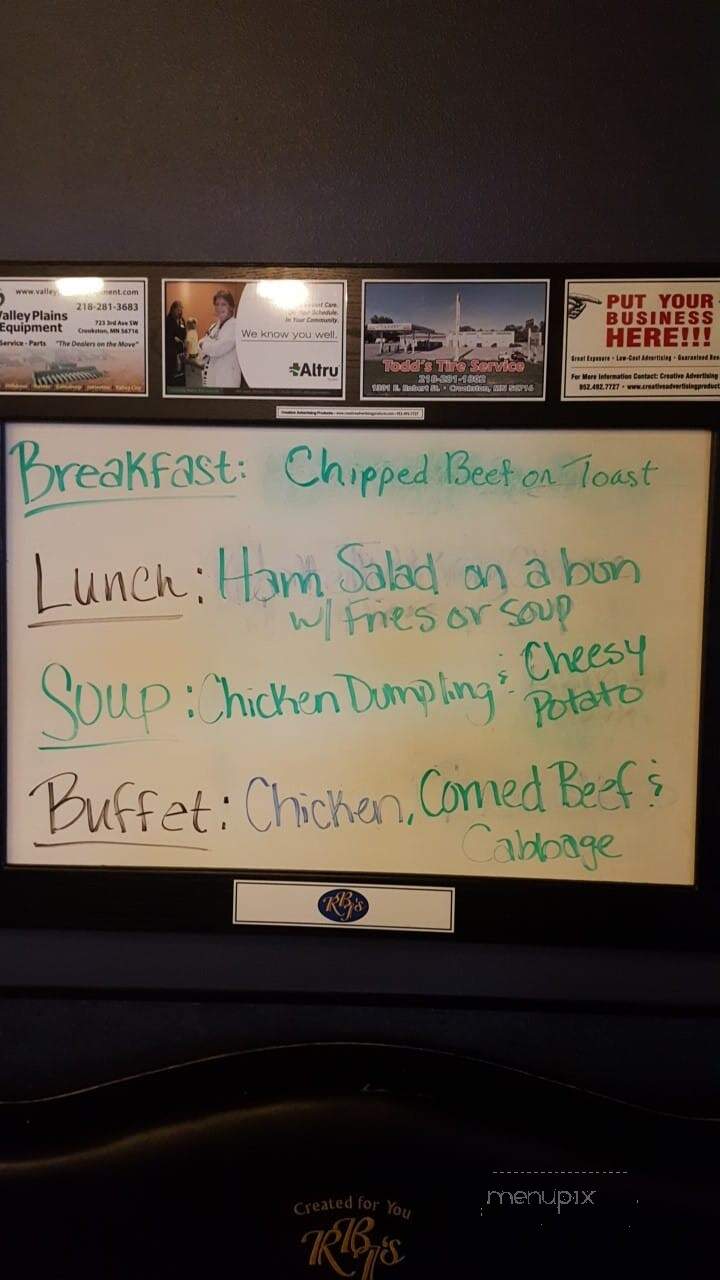 www.valley ment.com
218-281-3683
Valley Plains
Equipment
723 3rd Ave SW
Crookston, MN 56716
Service - Parts "The Dealers on the Move"
Care.
Schedule.
In Your Community.
We know you well.
Altru
Todd's Tire Service
218-281-1802
1301 E. Robert St. • Crookston, MN 56716
PUT YOUR
BUSINESS
HERE!!!
Great Exposure • Low-Cost Advertising • Guaranteed
For More Information Contact: Creative Advertising
952.492.7727 • www.creativeadvertisingproduct
Breakfast: Chipped Beef on Toast
Lunch: Ham Salad on a bun
w/ Fries or soup
Soup: Chicken Dumpling & Cheesy
Potato
Buffet: Chicken, Corned Beef &
Cabbage
RBJ's
Created for You
RBJ's
menupix